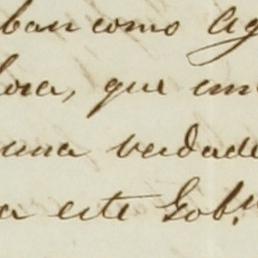 ban como Ag
lora, que em
una verdade
a este Gob.n